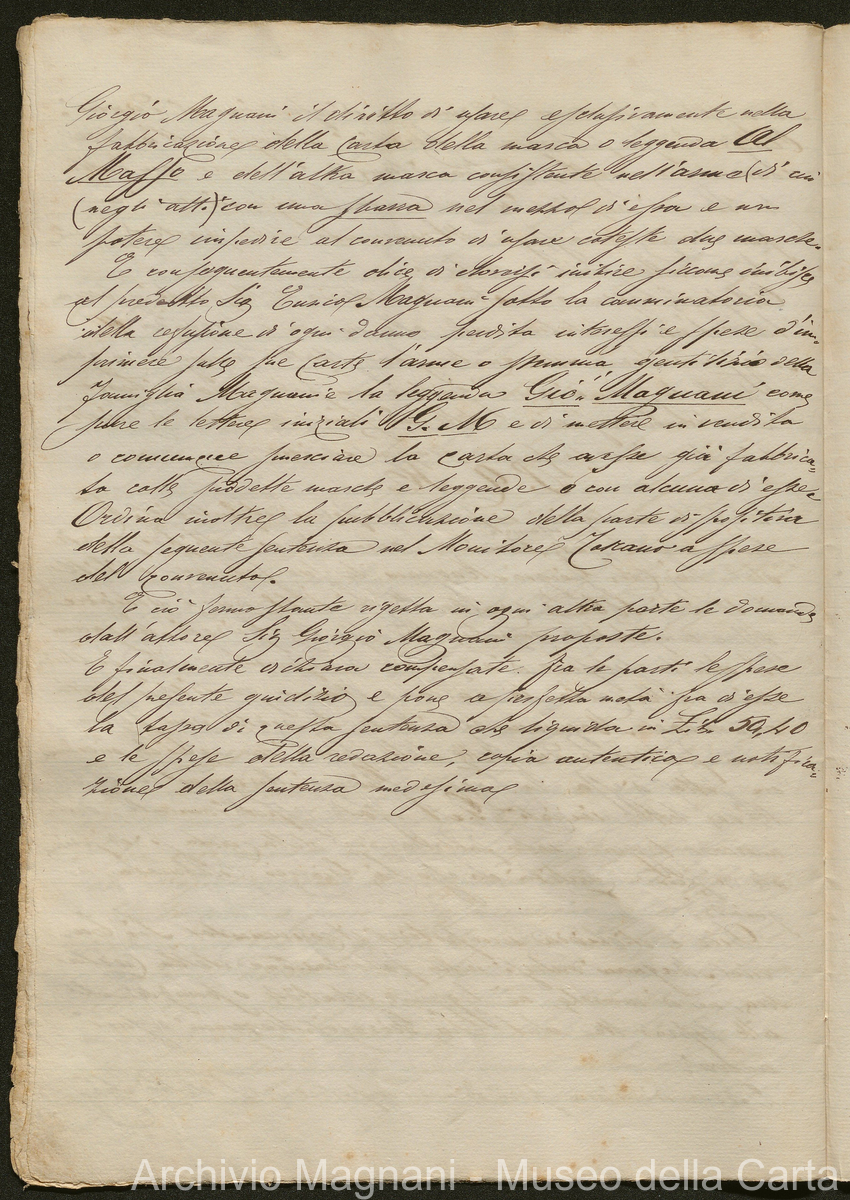 Giorgio Magnani il diritto di usare esclusivamente nella
fabbricazione della Carta della marca o leggenda Al
Masso e dell'altra marca consistente nell'arme (di cui
(negli atti) con una sbarra nel mezzo di essa e non
potere impedire al convenuto di usare coteste due marche.
E conseguentemente dice di doversi inibire siccome inibisce
al predetto Sig Enrico Magnani sotto la comminatoria
della refusione di ogni danno, perdita interessi e spese d'im-
primere sulle sue Carte l'arme o stemma gentilizio della
Famiglia Magnani e la leggenda Gio: Magnani come
pure le lettere iniziali G. M e di mettere in vendita
o comunque smerciare la carta che avesse già fabbrica-
ta colle predette marche e leggende o con alcuna di esse.
Ordina inoltre la pubblicazione della parte dispositiva
della seguente sentenza nel Monitore Toscano a spese
del convenuto.
E ciò fermo stante rigetta in ogni altra parte le domande
dall'attore Sig Giorgio Magnani proposte.
E finalmente dichiara compensate fra le parti le spese
del presente giudizio e pone a perfetta metà fra di esse
la tassa di questa sentenza che liquida in Lire 50,40
e le spese della redazione, copia autentica e notifica-
zione della sentenza medesima
Archivio Magnani - Museo della Carta